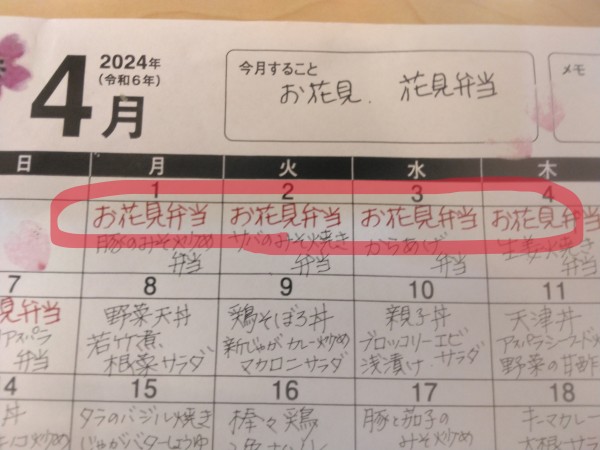 4月
2024年
(令和6年)
今月すること
お花見、花見弁当
メモ
日 月 火 水 木
1 2 3 4
お花見弁当 お花見弁当 お花見弁当 お花見弁当
豚のみそ炒め サバのみそ焼き からあげ 生姜焼き
弁当 弁当 弁当 弁当
7 8 9 10 11
見弁当 野菜天丼 鶏そぼろ丼 親子丼 天津丼
アスパラ 若竹煮 新じゃがカレー炒め ブロッコリーエビ アスパラシーフード炒
弁当 根菜サラダ マカロニサラダ 浅漬け サラダ 野菜の甘酢
4 15 16 17 18
丼 タラのバジル焼き 棒々鶏 豚と茄子の キーマカレー
じゃがバターしょうゆ みそ炒め 大根サラダ